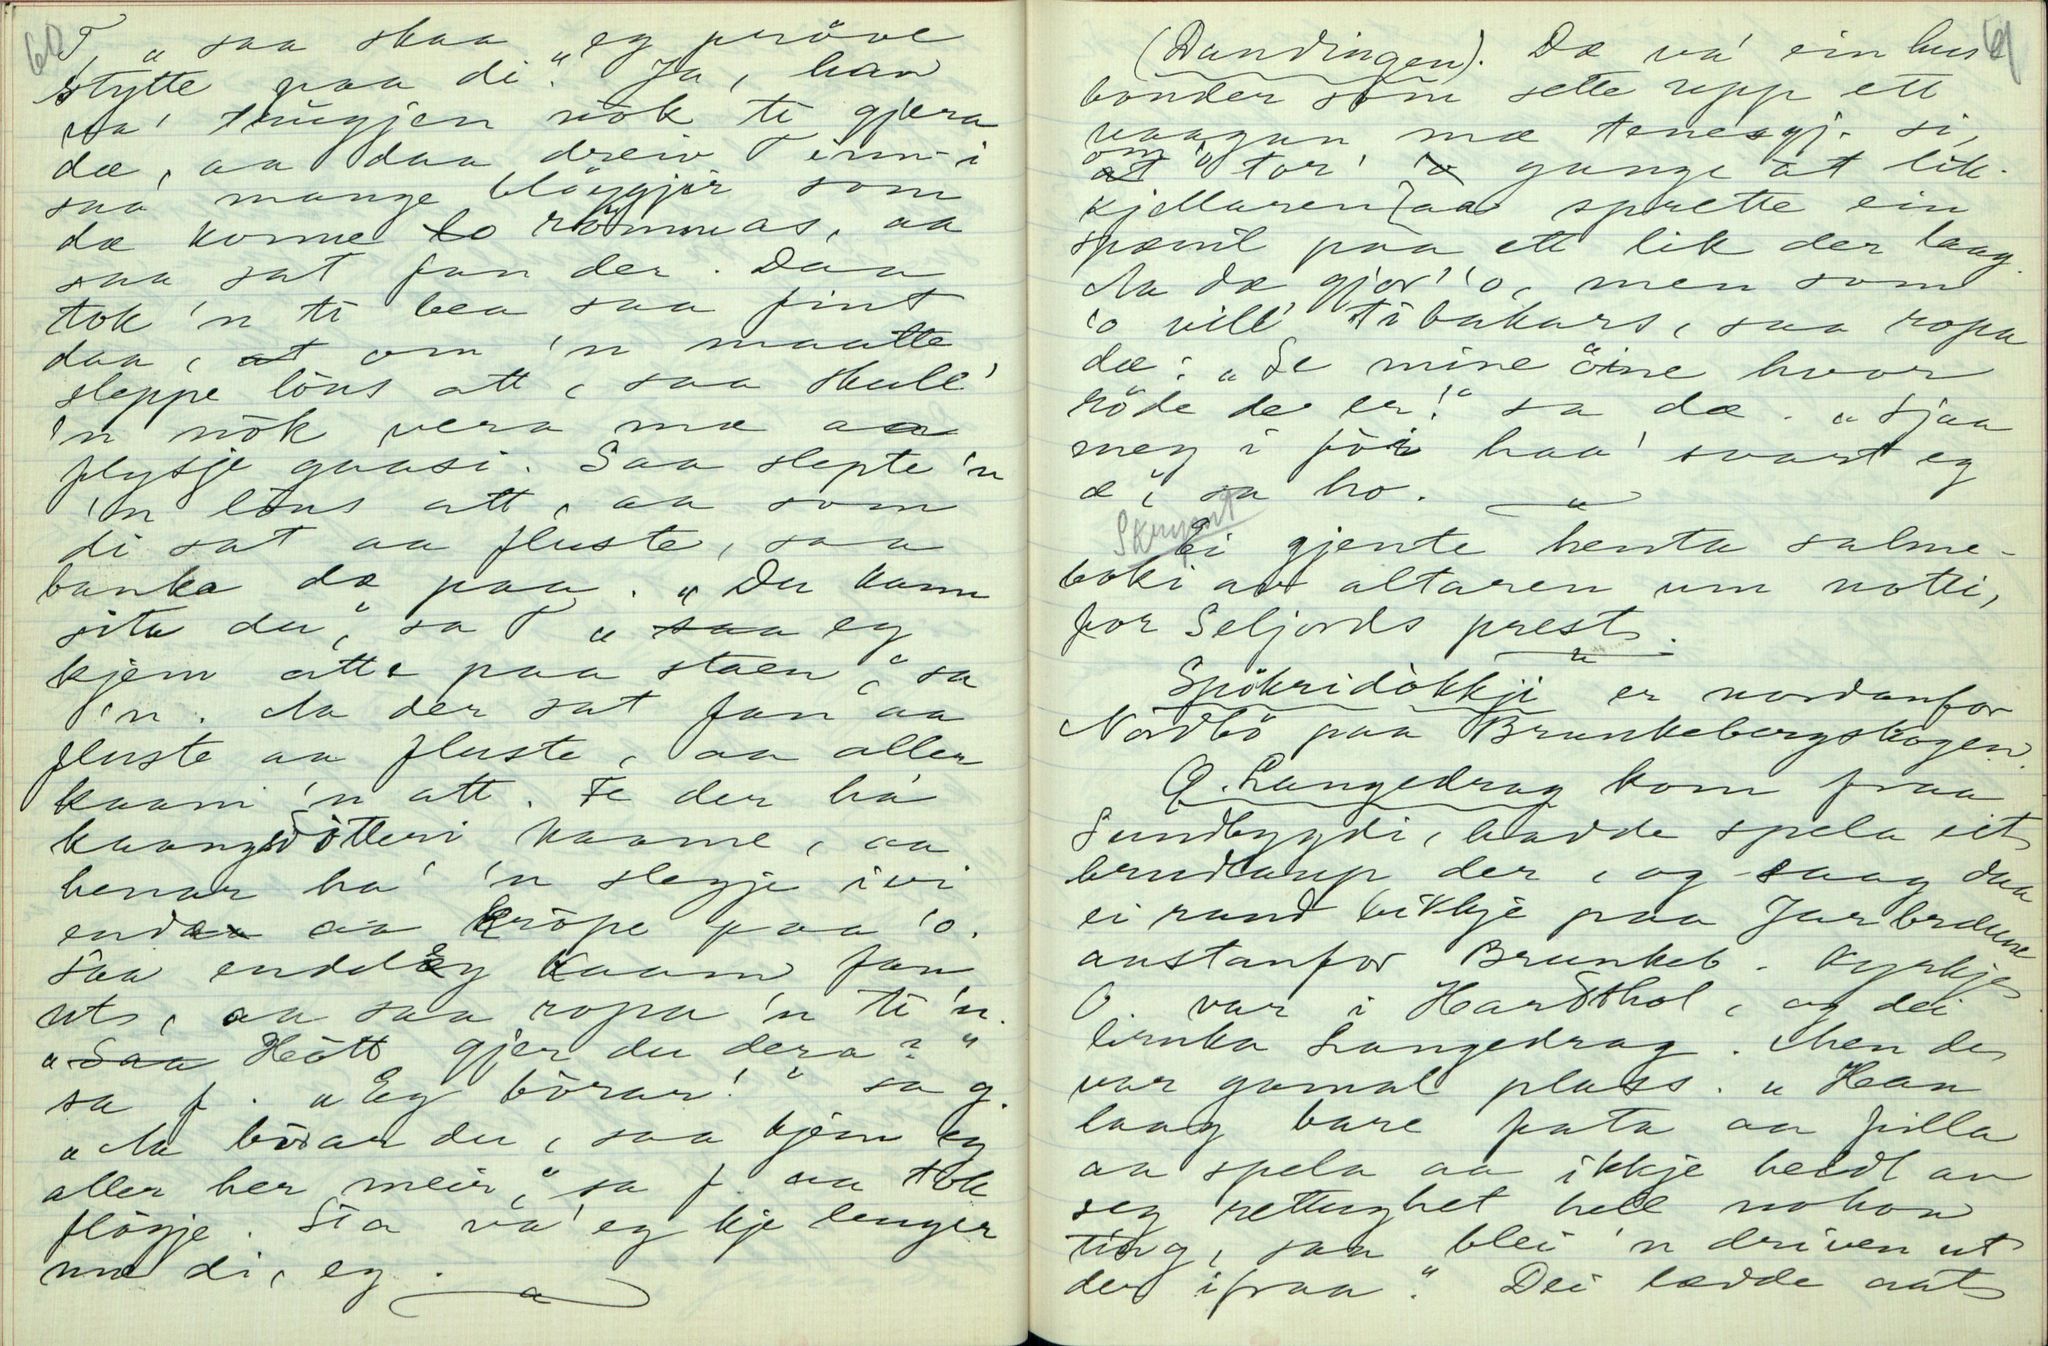 60
T, "saa skaa "eg pröve
stytte paa di." Ja, han
va' trugjen nök te gjera
dæ, aa daa dreiv T inn i
saa mange blöyggjir som
dæ konne to römmas, aa
saa sat fan der. Daa
tok 'n te bea saa fint
daa, at om 'n maatte
sleppe löus att, saa skull'
'n nök vera mæ aa
flysje gaasi. Saa slepte 'n
'n löus att, aa som
di sat aa fluste, saa
banka dæ paa. "Du kann
sita du", sa T "saa eg
kjem atte paa staen", sa
'n. Aa der sat fan aa
fluste aa fluste, aa aller
kaam 'n att. Te der ha
kaangsdötteri kaame, aa
henar ha' 'n slegje ivi
endan aa kröpe paa 'o.
Saa enddeg kaam fan
ut, aa saa ropa 'n te 'n.
"Saa Hött gjer du dera?"
sa f. "Eg börar!" sa g.
"Aa börar du, saa kjem eg
aller her meir," sa f. aa tok
flögje. Sia va' eg kje lenger
mæ di, eg.
61
(Dandingen). Dæ va' ein hus
bonder som sette upp ett
vaagan mæ tenesgj. si,
om 'o tor' gange at lik-
kjellaren aa sprette ein
spænil paa ett lik der laag.
Aa dæ gjor' 'o, men som
'o vill' tibakars, saa ropa
dæ: "Se mine öine hvor
röde de er!" sa dæ. "Sjaa
meg i föi haa' svart eg
æ", sa ho.
Skrymt
Ei gjente henta salme-
boki av altaren um notti,
for Seljords prest.
Spökridökkji er nordanfor
Nordbö paa Brunkebergskogen.
O. Langedrag kom fraa
Sundbygdi, hadde spela eit
brudlaup der, og saag daa
ei rand bikkje paa Jarbrdune
austanfor Brunkeb. kyrkje
O. var i Hardthol, og dei
lirnka Langedrag. Men de
var gamal plass. "Han
laag bare fata aa filla
aa spela aa ikkje heldt av
seg rettughet hell nokon
ting, saa blei 'n driven ut
der ifraa." Dei lædde aat